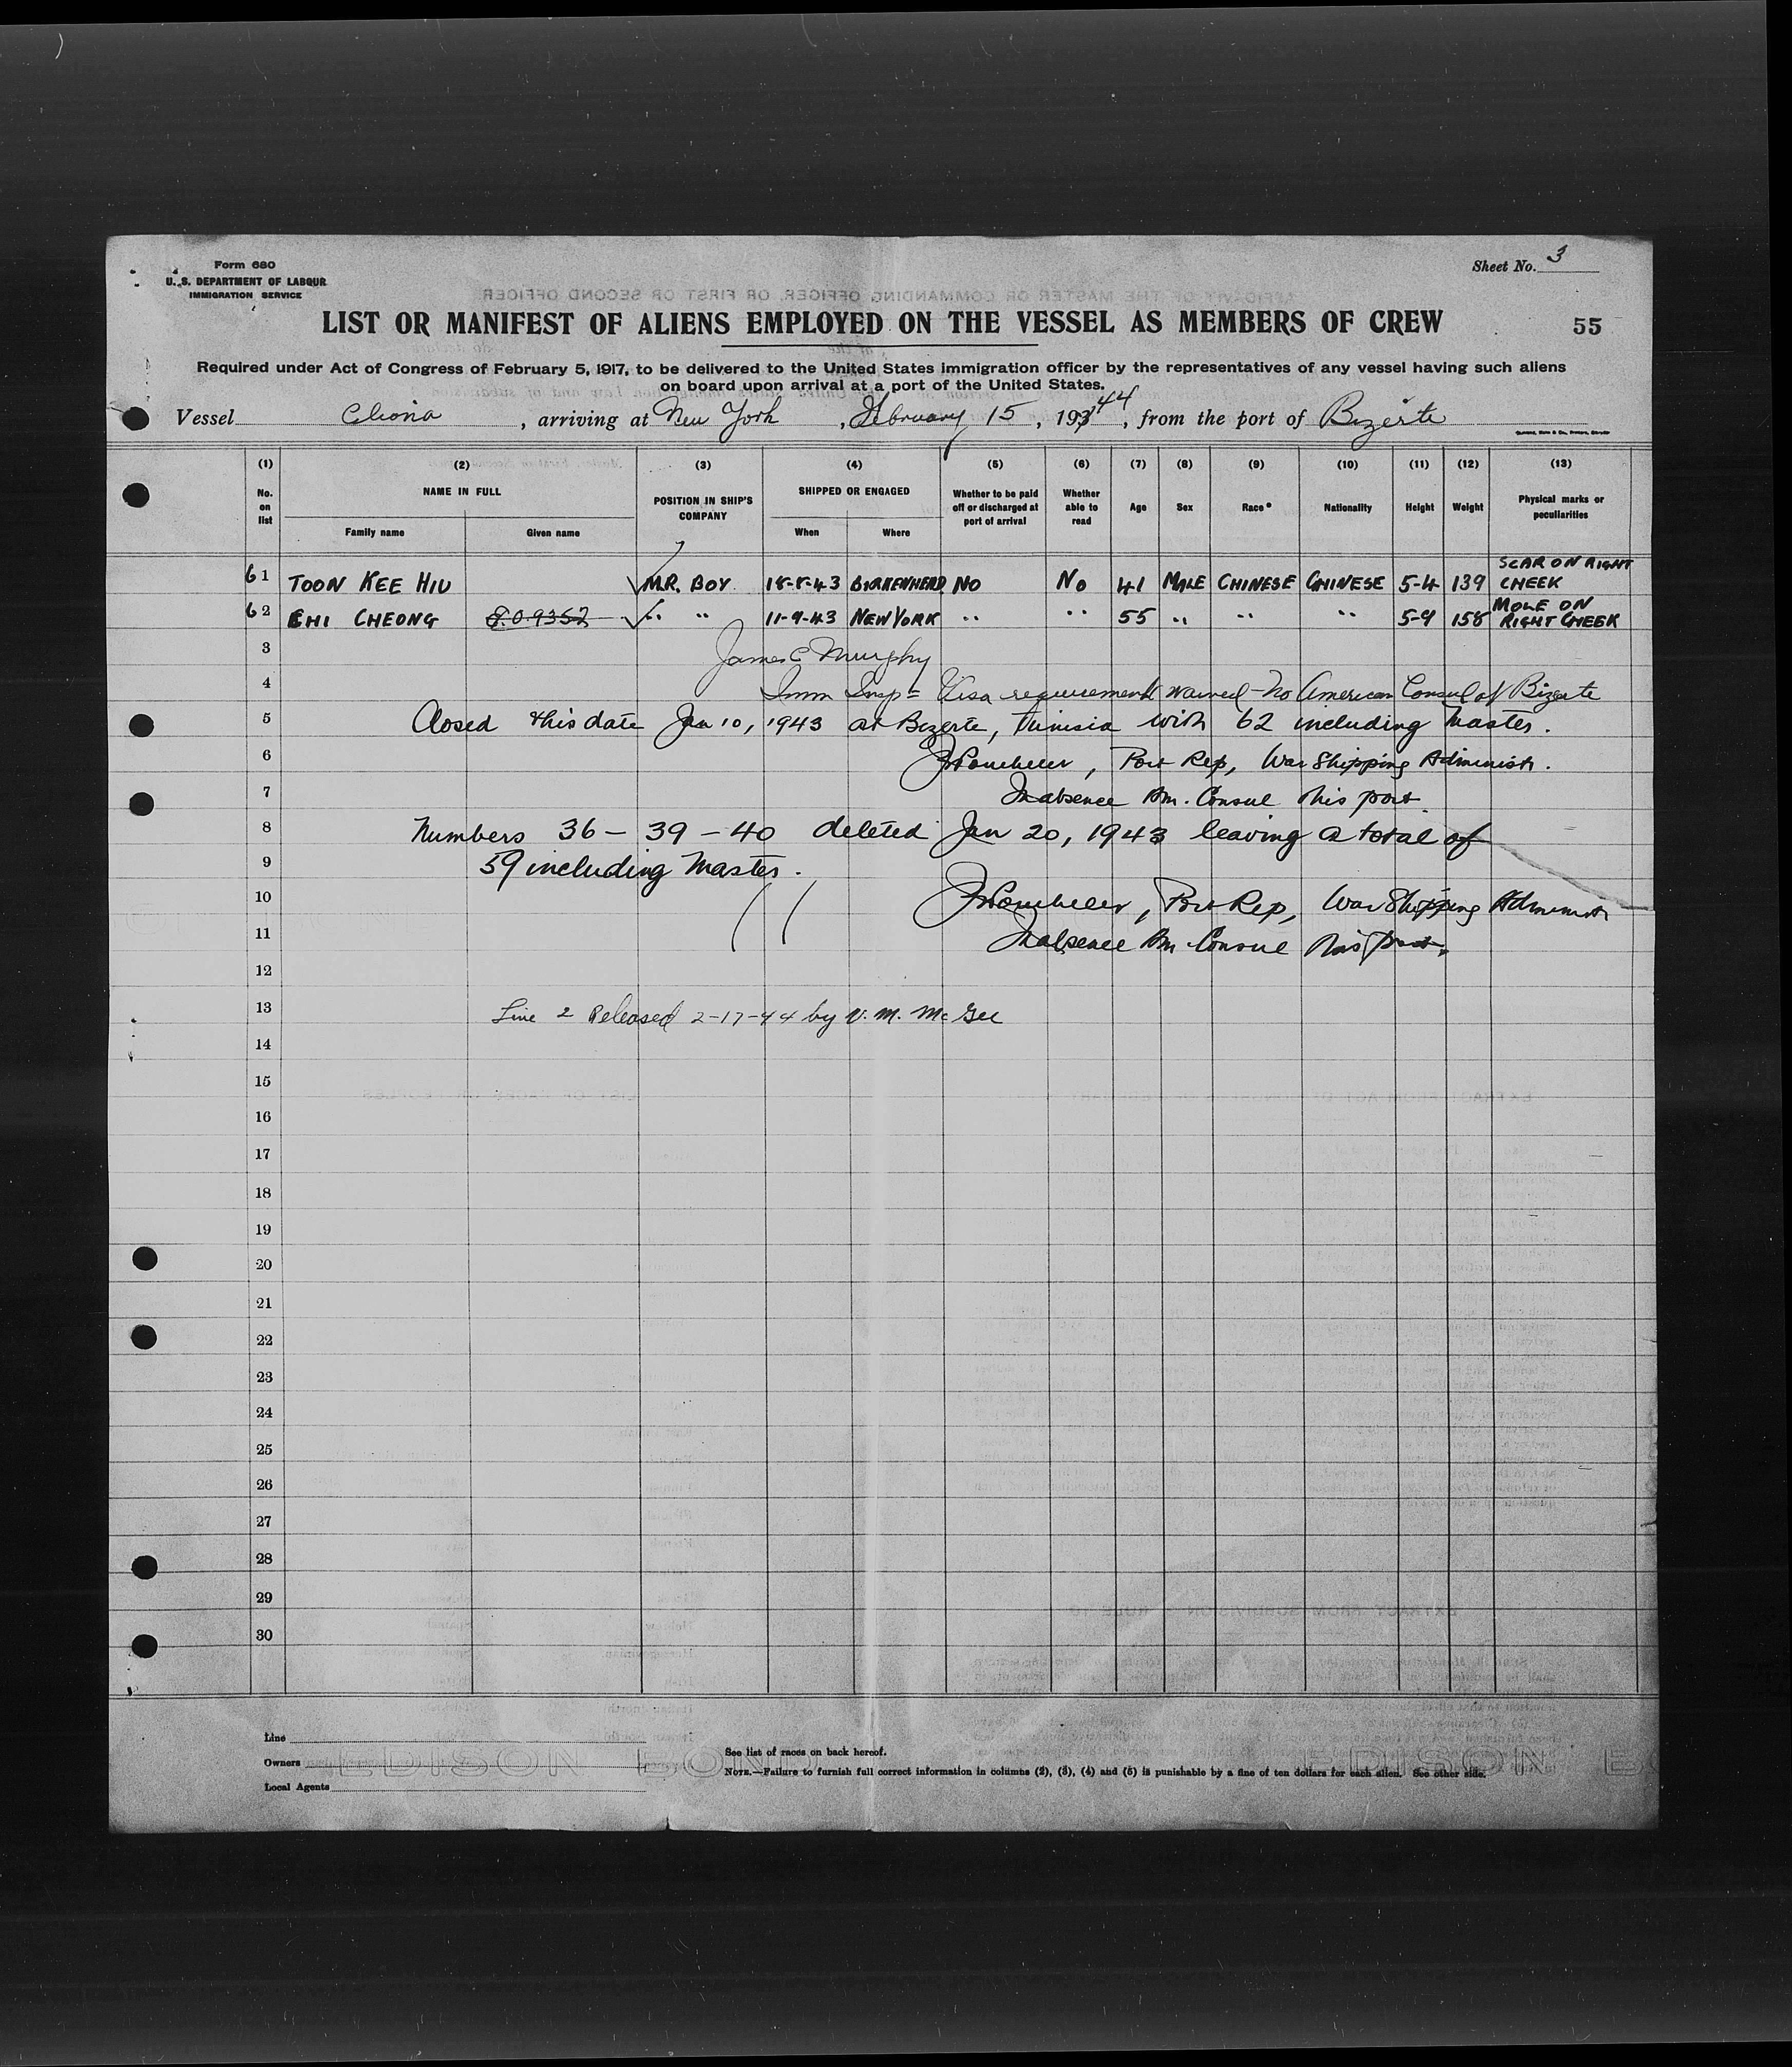 Form 680
U. S. DEPARTMENT OF LABOUR
IMMIGRATION SERVICE
Sheet No. 3
LIST OR MANIFEST OF ALIENS EMPLOYED ON THE VESSEL AS MEMBERS OF CREW
55
Required under Act of Congress of February 5, 1917, to be delivered to the United States immigration officer by the representatives of any vessel having such aliens
on board upon arrival at a port of the United States.
Vessel Cliona, arriving at New York, February 15, 19344, from the port of Bizerte
(1) (2) (3) (4) (5) (6) (7) (8) (9) (10) (11) (12) (13)
No. on list
NAME IN FULL
Family name
Given name
POSITION IN SHIP'S COMPANY
SHIPPED OR ENGAGED
When
Where
Whether to be paid off or discharged at port of arrival
Whether able to read
Age
Sex
Race*
Nationality
Height
Weight
Physical marks or peculiarities
61 TOON KEE HIU M.R. BOY 18-8-43 BIRKENHEAD NO NO 41 MALE CHINESE CHINESE 5-4 139 SCAR ON RIGHT CHEEK
62 CHI CHEONG 8.0.9352 " " 11-9-43 NEW YORK " " 55 " " " 5-9 158 MOLE ON RIGHT CHEEK
3 James C Murphy
4 Imm Insp = Visa requirement waived - No American Consul at Bizerte
5 Closed this date Jan 10, 1943 at Bizerte, Tunisia with 62 including Master.
6 Port Rep, War Shipping Administr.
7 In absence Am. Consul this port.
8 Numbers 36 - 39 - 40 deleted Jan 20, 1943 leaving a total of
9 59 including Master.
10 Port Rep, War Shipping Administr
11 In absence Am Consul this port.
12
13 Line 2 Released 2-17-44 by V. M. McGee
14
15
16
17
18
19
20
21
22
23
24
25
26
27
28
29
30
Line
Owners
Local Agents
See list of races on back hereof.
NOTE.—Failure to furnish full correct information in columns (2), (3), (4) and (5) is punishable by a fine of ten dollars for each alien. See other side.
EDISON BOND EDISON BO